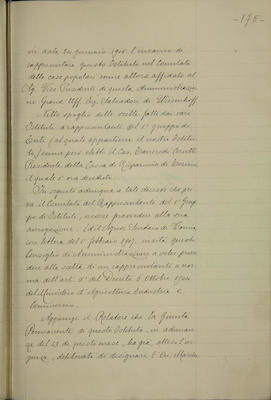 -175-
in data 20 gennaio 1905 l'incarico di
rappresentare questo Istituto nel Comitato
delle case popolari venne allora affidato al
Sig. Vice Presidente di questa Amministrazione
Grand Uff. Ing. Salvadori di Wiesenhoff.
Nello spoglio delle scelte fatte dai vari
Istituti a rappresentanti del 1° gruppo di
Enti (al quale appartiene il nostro Istitu-
to) venne però eletto il Cav.
Presidente della Cassa di Risparmio di Torino,
il quale è ora decaduto.
In seguito adunque a tale decesso che pri-
va il Comitato del Rappresentante del 1° Grup-
po di Istituti, occorre provvedere alla sua
surrogazione. Ed il Signor Sindaco di
con lettera del 5 febbraio 1907, invita questo
Consiglio di Amministrazione a voler proce-
dere alla scelta di un rappresentante a nor-
ma dell'art. 5° del Decreto 6 ottobre
del Ministero d'Agricoltura Industria e
Commercio.
Aggiunge il Relatore che la Giunta
Permanente di questo Istituto, in adunan-
za del 13 di questo mese, ha già, attesa l'ur-
genza, deliberato di designare il Cav.